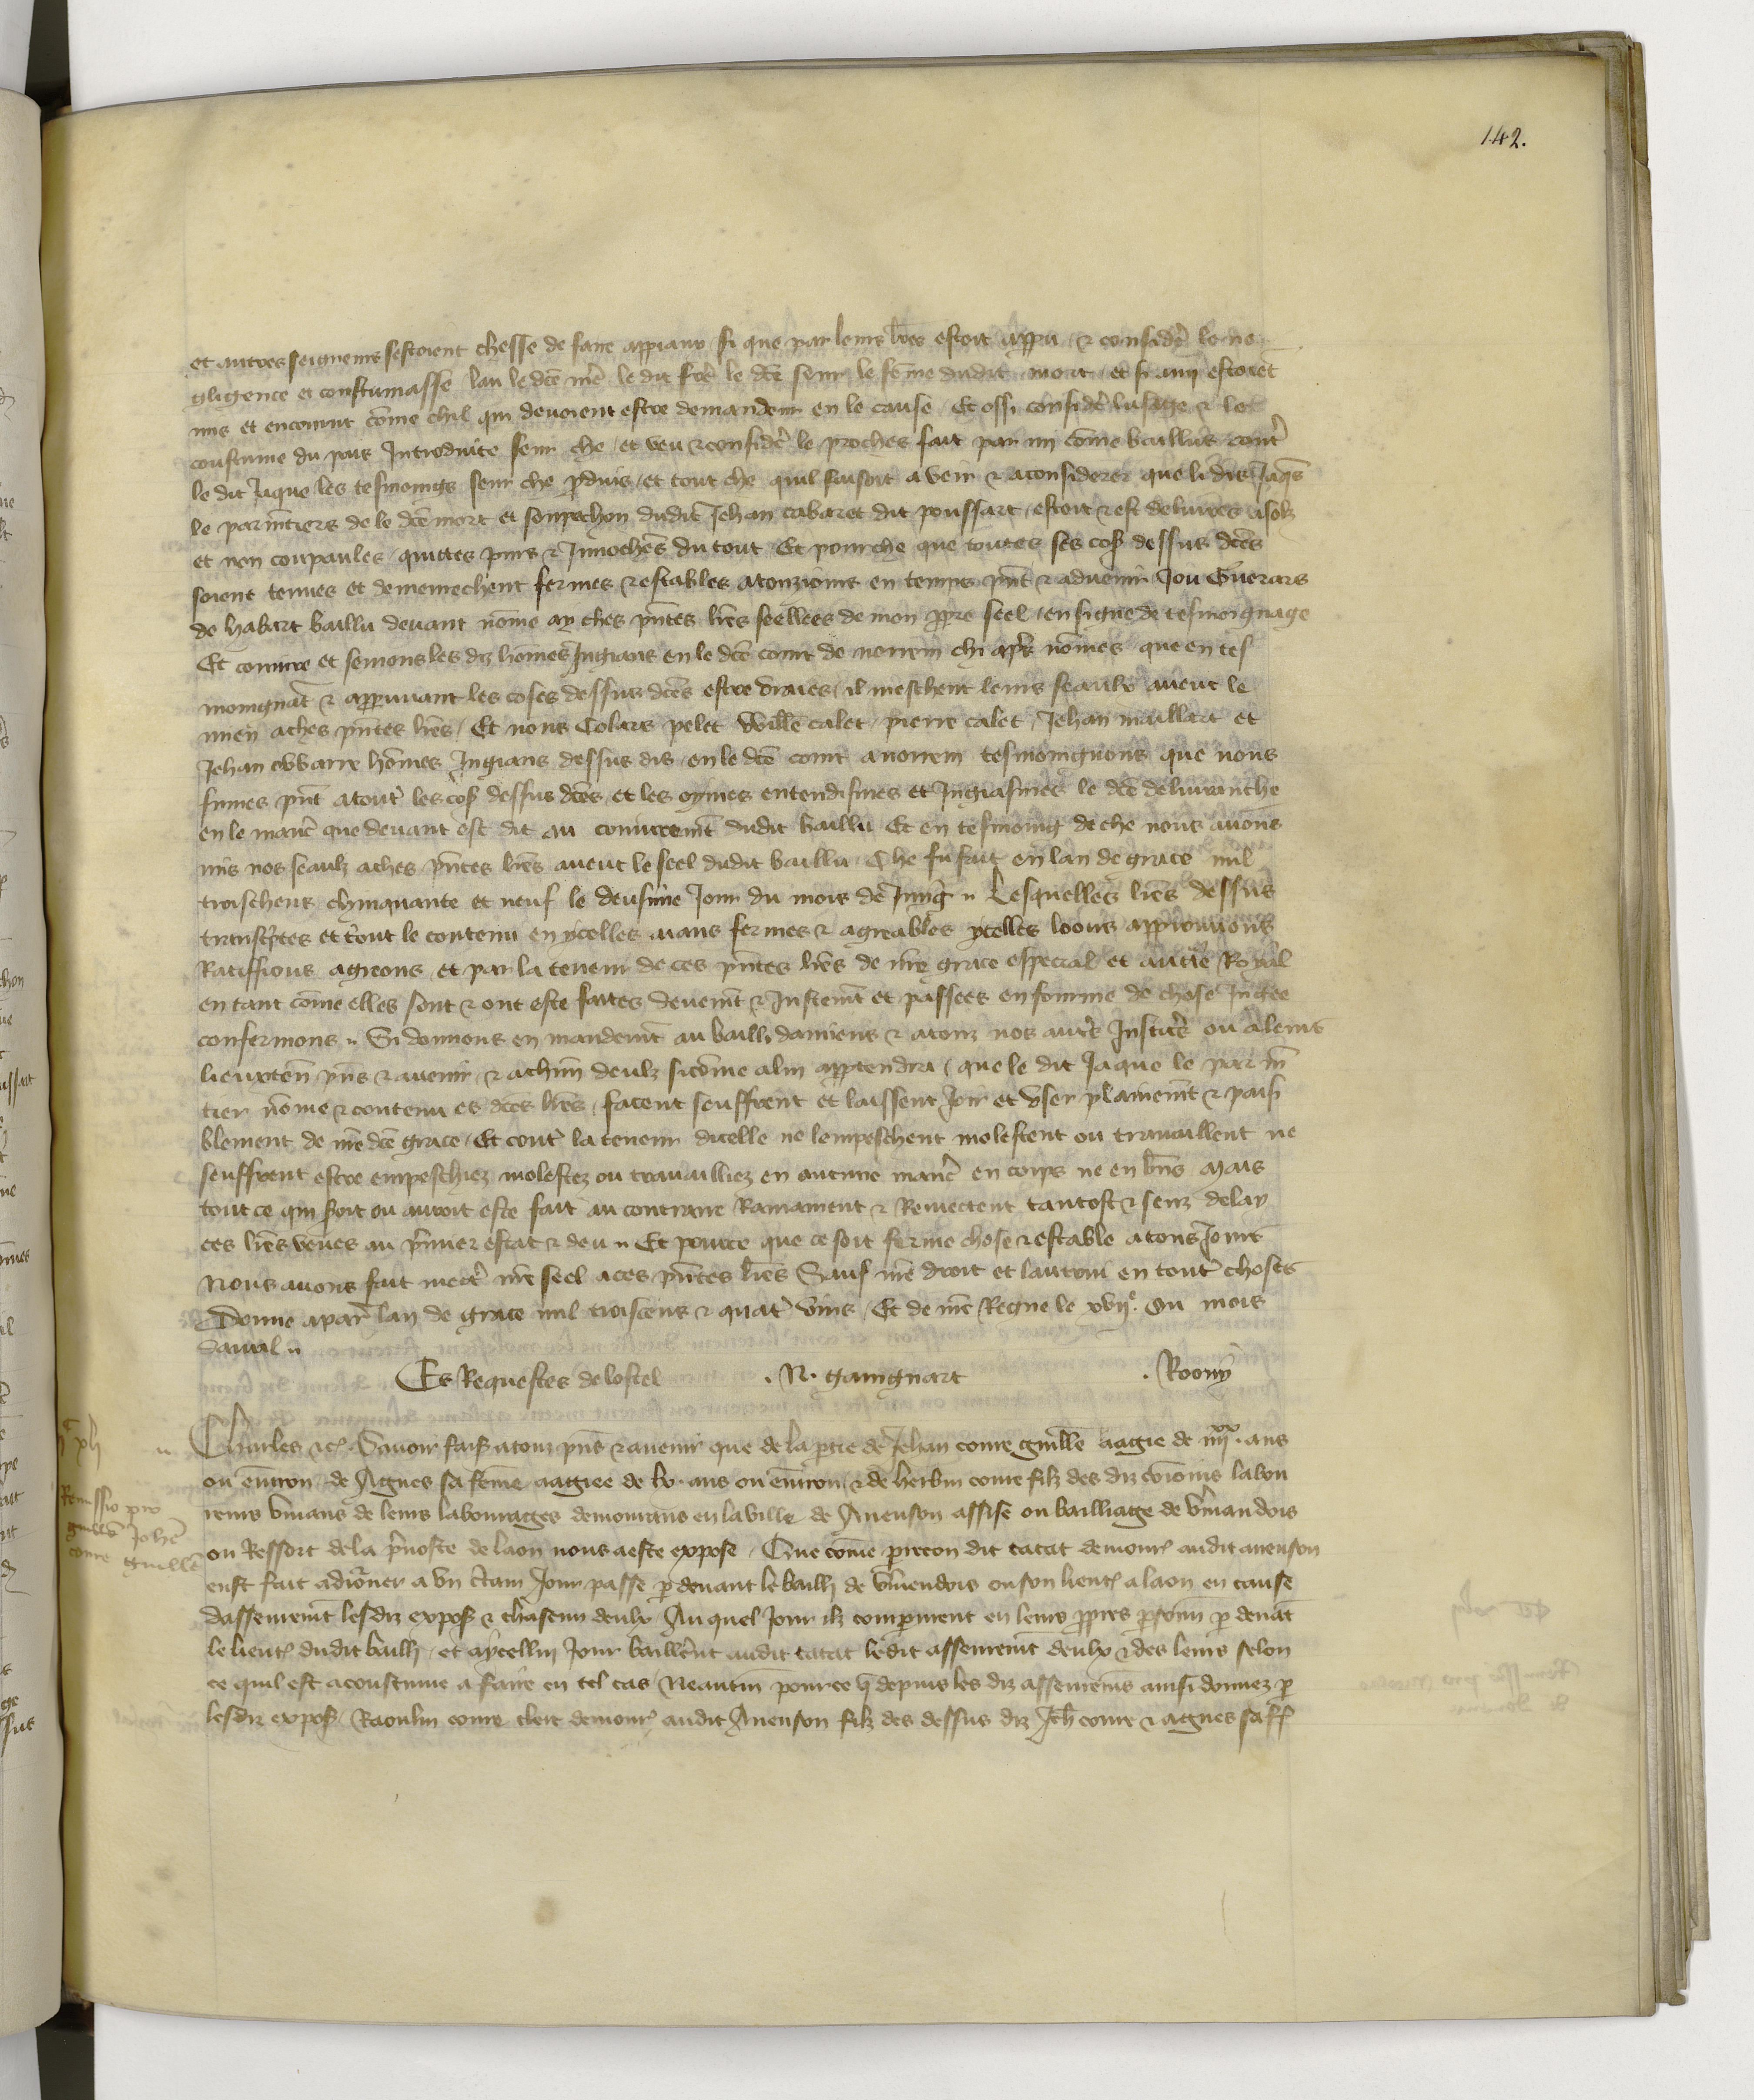 142.
et autres seigneurs sestoient chesse de faire appiaux si que par leurs lres estoit apparu & considere le ne
gligence et constumasse lau le dce mere le dit frere le dce seur le feme dudit mort et si amy estoiet
mis et encourut come chil qui devoient estre demandeur en le cause Et ossi considere lusaige & le
coustume du pais Introduite seur che et veu & considere le proches fait par my come baillius contre
le dit Jaque les tesmoings seur che pduis et tout che quil faisoit a veir & a considerer que li dis Jaqs
le parmtiers de le dce mort et soupechon dudit Jehan cabaret dit poussart estoit & est delivres asolz
et non coupaules quittes purs & Innochens du tout Et pour che que toutes ses cos dessus dces
soient tenues et demeurechent fermes & estables a touziours en temps pnt & advenir Jou Guerars
de habart baillu devant nome ay ches pntes lres seellees de mon ppre seel en signe de tesmoignage
Et coniure et semons les diz homes Jugians en le dce court de norrem chi apres nomes que en tes
moingnat & appruvant les coses dessus dces estre vraies il mechent leurs seaulx aveuc le
mien a ches pntes lres Et nous Colars pelet Willē calet pierre calet Jehan maillart et
Jehan homes Jugians dessus dis en le dce court a norrem tesmoingnons que nous
fumes pnt a tout les cos dessus dces et les oymes entendismes et Jugiasmes le dce delivranche
en le manre que devant est dit au coniuremt dudit baillu Et en tesmoing de che nous avons
mis nos seaulz a ches pntes lres aveuc le seel dudit baillu Che fu fait en lan de grace mil
troischens chinquante et neuf le deusime Jour du mois de Juing Lesquelles lres dessus
transcptes et tout le contenu en ycelles aians fermes & agreables ycelles loons approuvons
Ratiffions agreons et par la teneur de ces pntes lres de nre grace especial et autre Roial
en tant come elles sont & ont este faites deuemt & Justemt et passees en fourme de chose Jugee
confermons Si donnons en mandemt au bailli damiens & a touz nos autrs Justicrs ou a leurs
lieuxten pns & avenir & a chun deulz si come a lui apptendra que le dit Jaque le parm
tier nome & contenu es dces lres facent seuffrent et laissent Joir et user plainemt & paisi
blement de nre dce grace Et contr la teneur dicelle ne lempeschent molestent ou travaillent ne
seuffrent estre empeschiez molestez ou travailliez en aucune manre en corps ne en bns Mais
tout ce qui soit ou auroit este fait au contraire Ramainent & Remectent tantost & senz delay
ces lres veues au pmier estat & deu Et pource que ce soit ferme chose & estable a tous Jours
Nous avons fait mectre nre seel a ces pntes lres Sauf nre droit et lautrui en tout choses
Donne a par lan de grace mil troiscens & quatr vins Et de nre Regne le xvije. Ou mois
davril
Es Requestes de lostel . N. gaingnart . Roony
Charles &c. Savoir faiss a touz pns & avenir que de la ptie de Jehan conre guille aagie de iiijxx. ans
ou environ de Agnes sa feme aagiee de lx. ans ou environ & de herbin conre filz des diz coioins labou
reurs vivans de leurs labourages demourans en la ville de Avenson assise ou bailliage de vmandois
ou Ressort de la prevoste de laon nous a este expose Que come pieron dit tatat demour audit avenson
eust fait adiorner a un ctain Jour passe p devant le bailli de vmendois ou son lieut a laon en cause
dasseuremt lesdiz expos & chascun deulx Au quel Jour ilz comparurent en leurs ppres psonn p devat
le lieut dudit bailli et a ycellui Jour baillerent audit tatat ledit asseuremt deulx & des leurs selon
ce quil est acoustume a faire en tel cas Neautm pource q depuis les diz asseuremens ainsi donnez p
lesdiz expos Raoulin conre clerc demour audit Avenson filz des dessus diz Jeh conre & agnes sa f
Remissio pro
guillō Johē
conre guillē